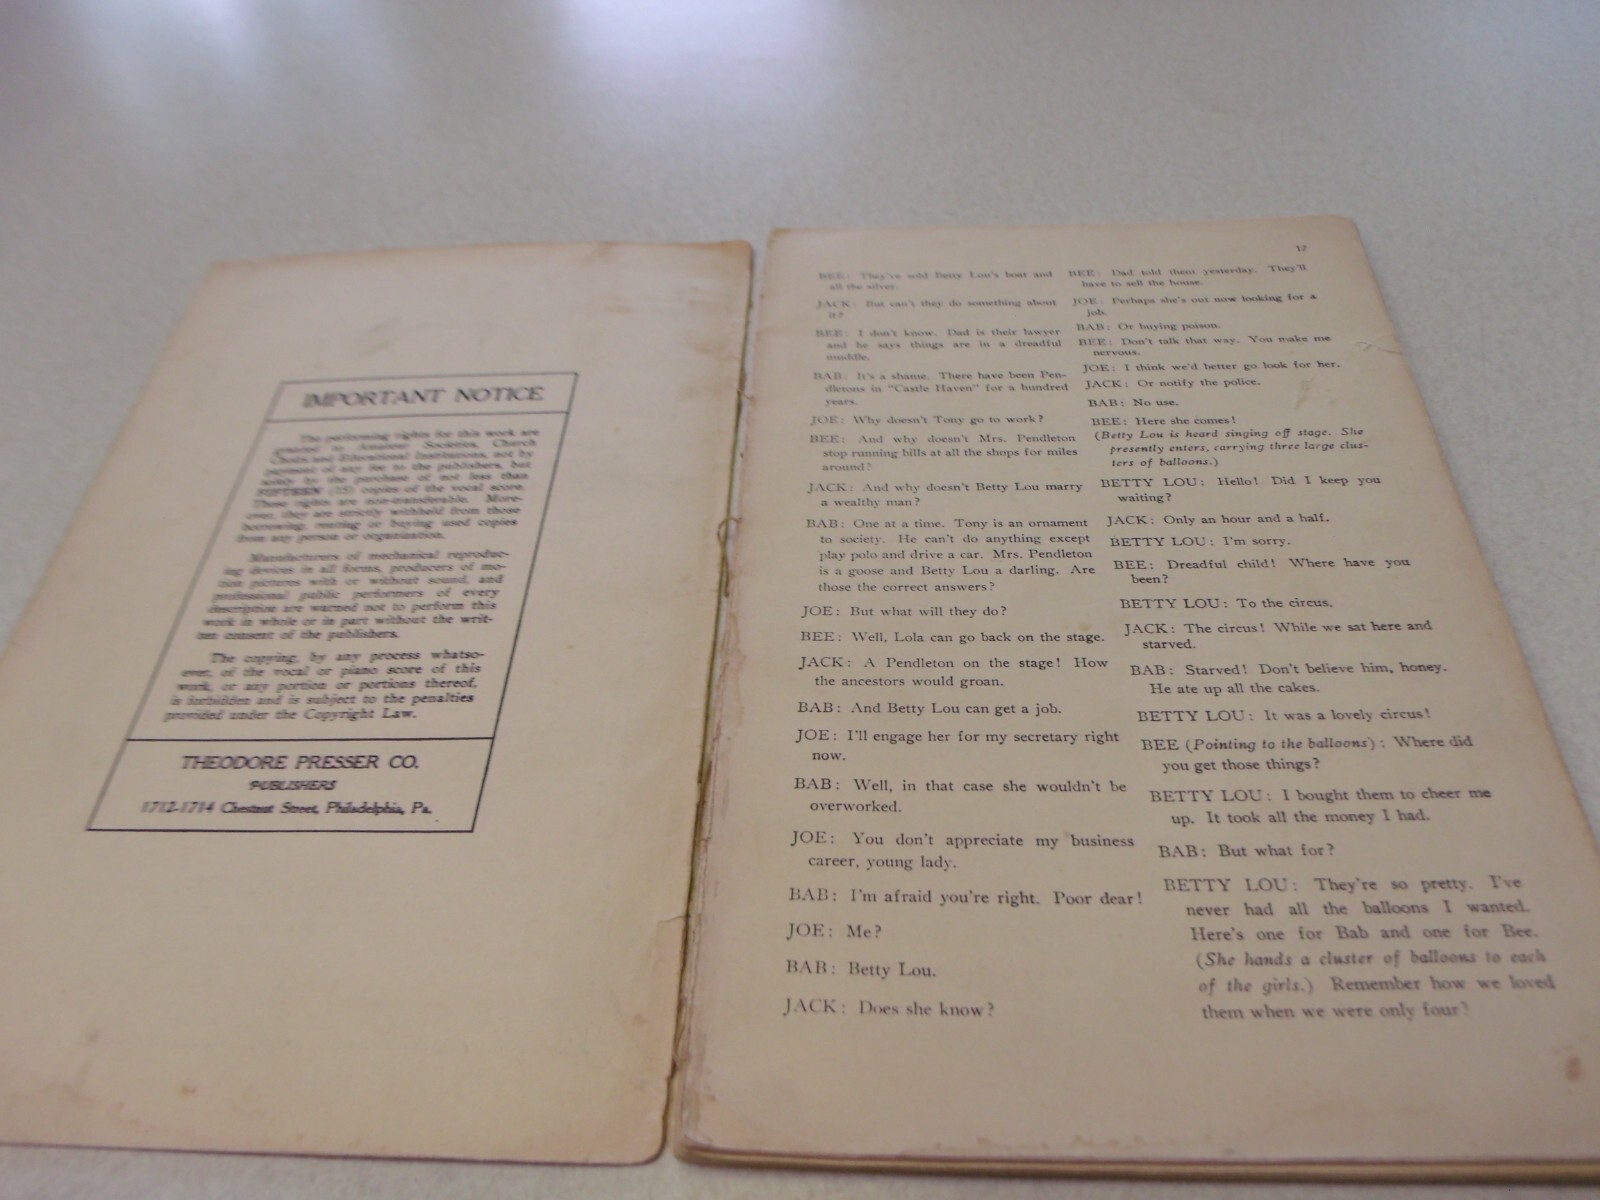 IMPORTANT NOTICE
The performing rights for this work are
granted to Amateur Societies, Church
Choirs and Educational Institutions, not by
payment of any fee to the publishers, but
solely by the purchase of not less than
FIFTEEN (15) copies of the vocal score.
These rights are non-transferable. More-
over, they are strictly withheld from those
borrowing, renting or buying used copies
from any person or organization.
Manufacturers of mechanical reproduc-
ing devices in all forms, producers of mo-
tion pictures with or without sound, and
professional public performers of every
description are warned not to perform this
work in whole or in part without the writ-
ten consent of the publishers.
The copying, by any process whatso-
ever, of the vocal or piano score of this
work, or any portion or portions thereof,
is forbidden and is subject to the penalties
provided under the Copyright Law.
THEODORE PRESSER CO.
PUBLISHERS
1712-1714 Chestnut Street, Philadelphia, Pa.
17
BEE: They've sold Betty Lou's boat and
all the silver.
JACK: But can't they do something about
it?
BEE: I don't know. Dad is their lawyer
and he says things are in a dreadful
muddle.
BAB: It's a shame. There have been Pen-
dletons in "Castle Haven" for a hundred
years.
JOE: Why doesn't Tony go to work?
BEE: And why doesn't Mrs. Pendleton
stop running bills at all the shops for miles
around?
JACK: And why doesn't Betty Lou marry
a wealthy man?
BAB: One at a time. Tony is an ornament
to society. He can't do anything except
play polo and drive a car. Mrs. Pendleton
is a goose and Betty Lou a darling. Are
those the correct answers?
JOE: But what will they do?
BEE: Well, Lola can go back on the stage.
JACK: A Pendleton on the stage! How
the ancestors would groan.
BAB: And Betty Lou can get a job.
JOE: I'll engage her for my secretary right
now.
BAB: Well, in that case she wouldn't be
overworked.
JOE: You don't appreciate my business
career, young lady.
BAB: I'm afraid you're right. Poor dear!
JOE: Me?
BAB: Betty Lou.
JACK: Does she know?
BEE: Dad told them yesterday. They'll
have to sell the house.
JOE: Perhaps she's out now looking for a
job.
BAB: Or buying poison.
BEE: Don't talk that way. You make me
nervous.
JOE: I think we'd better go look for her.
JACK: Or notify the police.
BAB: No use.
BEE: Here she comes!
(Betty Lou is heard singing off stage. She
presently enters, carrying three large clus-
ters of balloons.)
BETTY LOU: Hello! Did I keep you
waiting?
JACK: Only an hour and a half.
BETTY LOU: I'm sorry.
BEE: Dreadful child! Where have you
been?
BETTY LOU: To the circus.
JACK: The circus! While we sat here and
starved.
BAB: Starved! Don't believe him, honey.
He ate up all the cakes.
BETTY LOU: It was a lovely circus!
BEE (Pointing to the balloons): Where did
you get those things?
BETTY LOU: I bought them to cheer me
up. It took all the money I had.
BAB: But what for?
BETTY LOU: They're so pretty. I've
never had all the balloons I wanted.
Here's one for Bab and one for Bee.
(She hands a cluster of balloons to each
of the girls.) Remember how we loved
them when we were only four?